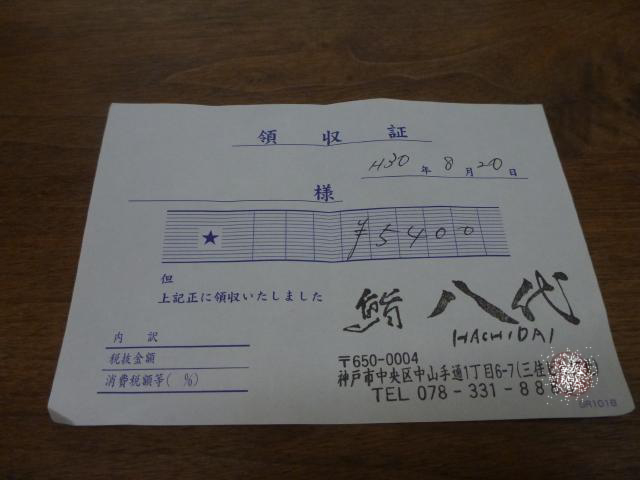 領収証
H30年8月20日
様
★ ¥5400
但
上記正に領収いたしました
鮨 八代
HACHIDAI
内訳
税抜金額
消費税額等( %)
〒650-0004
神戸市中央区中山手通1丁目6-7(三住
TEL 078-331-88